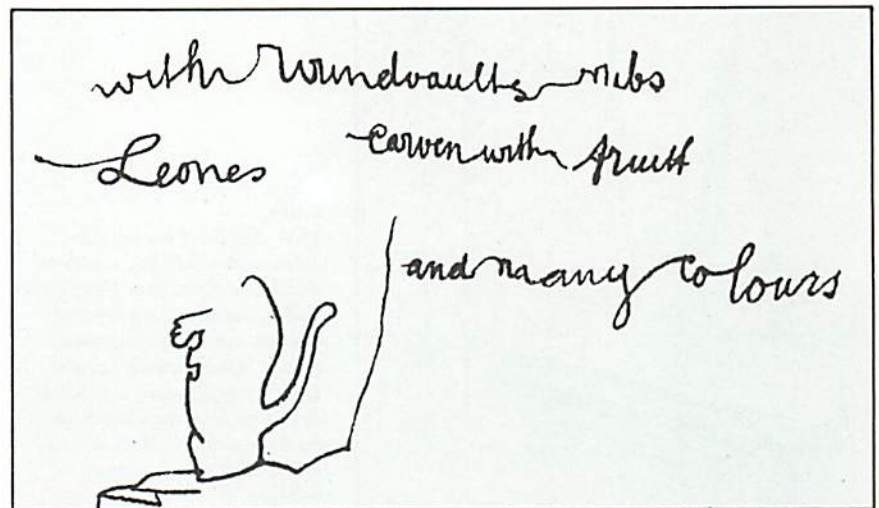 with Roundvaults ribs
Leones carven with fruitt
and many colours